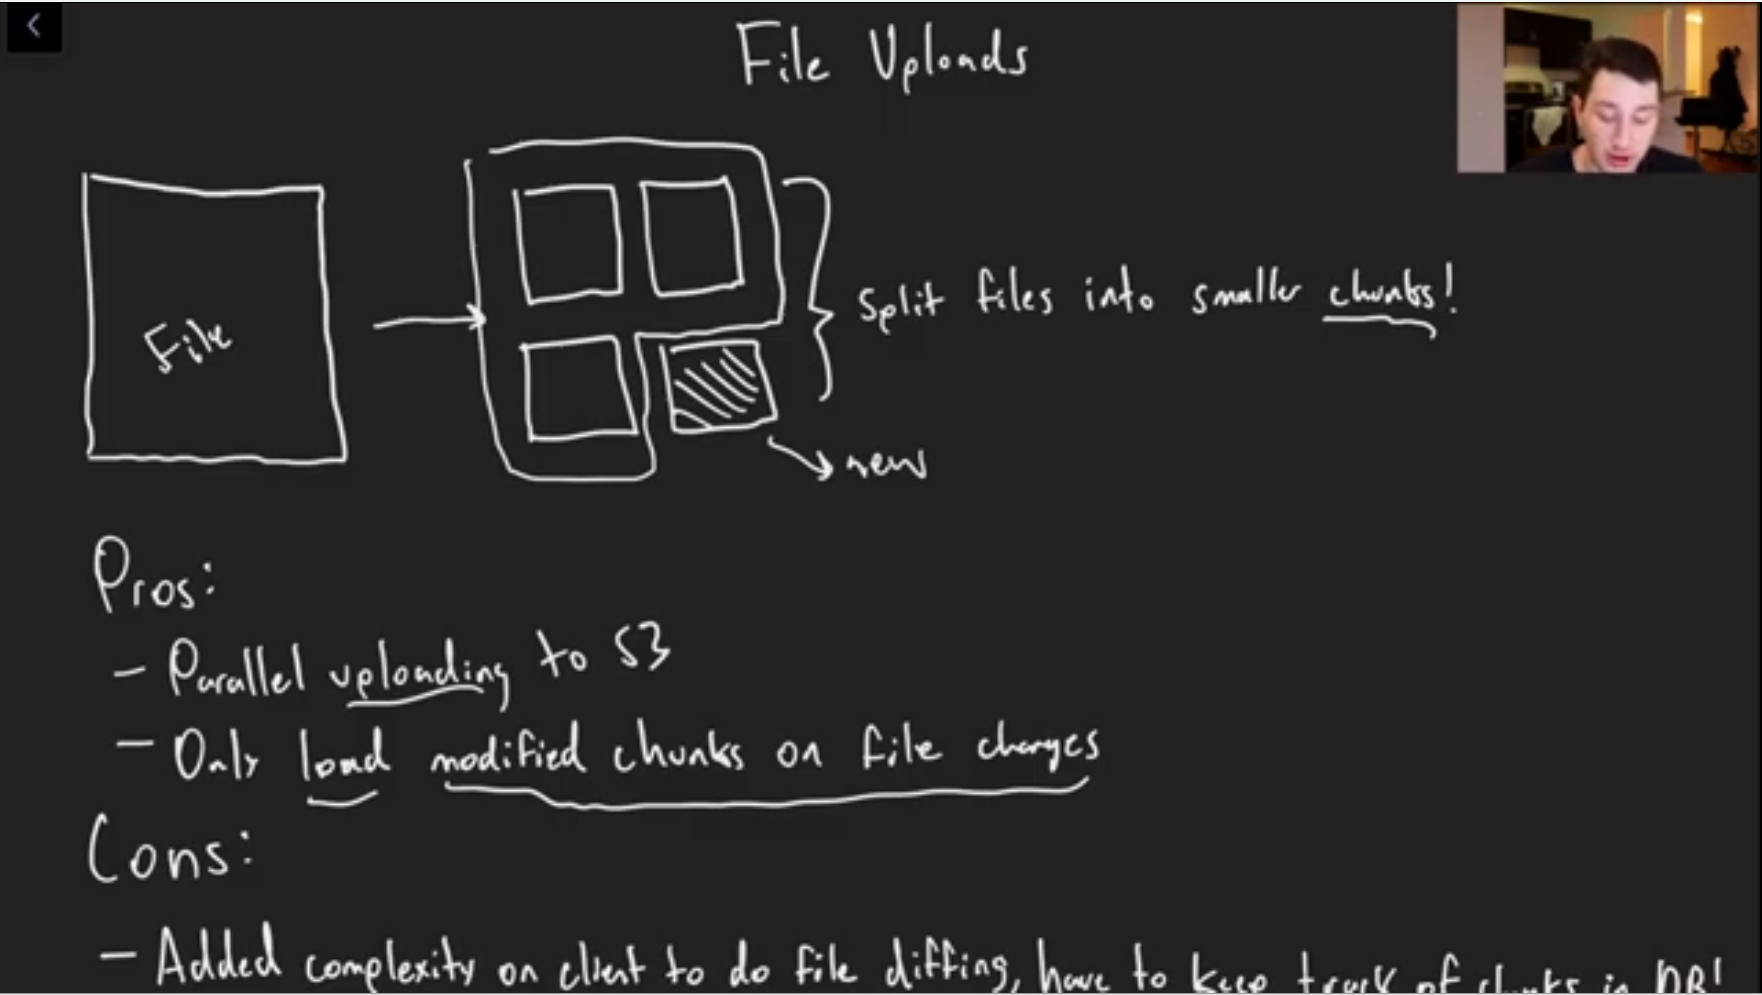 File Uploads
File
Split files into smaller chunks!
new
Pros:
- Parallel uploading to S3
- Only load modified chunks on file changes
Cons:
- Added complexity on client to do file diffing, have to keep track of chunks in DB!